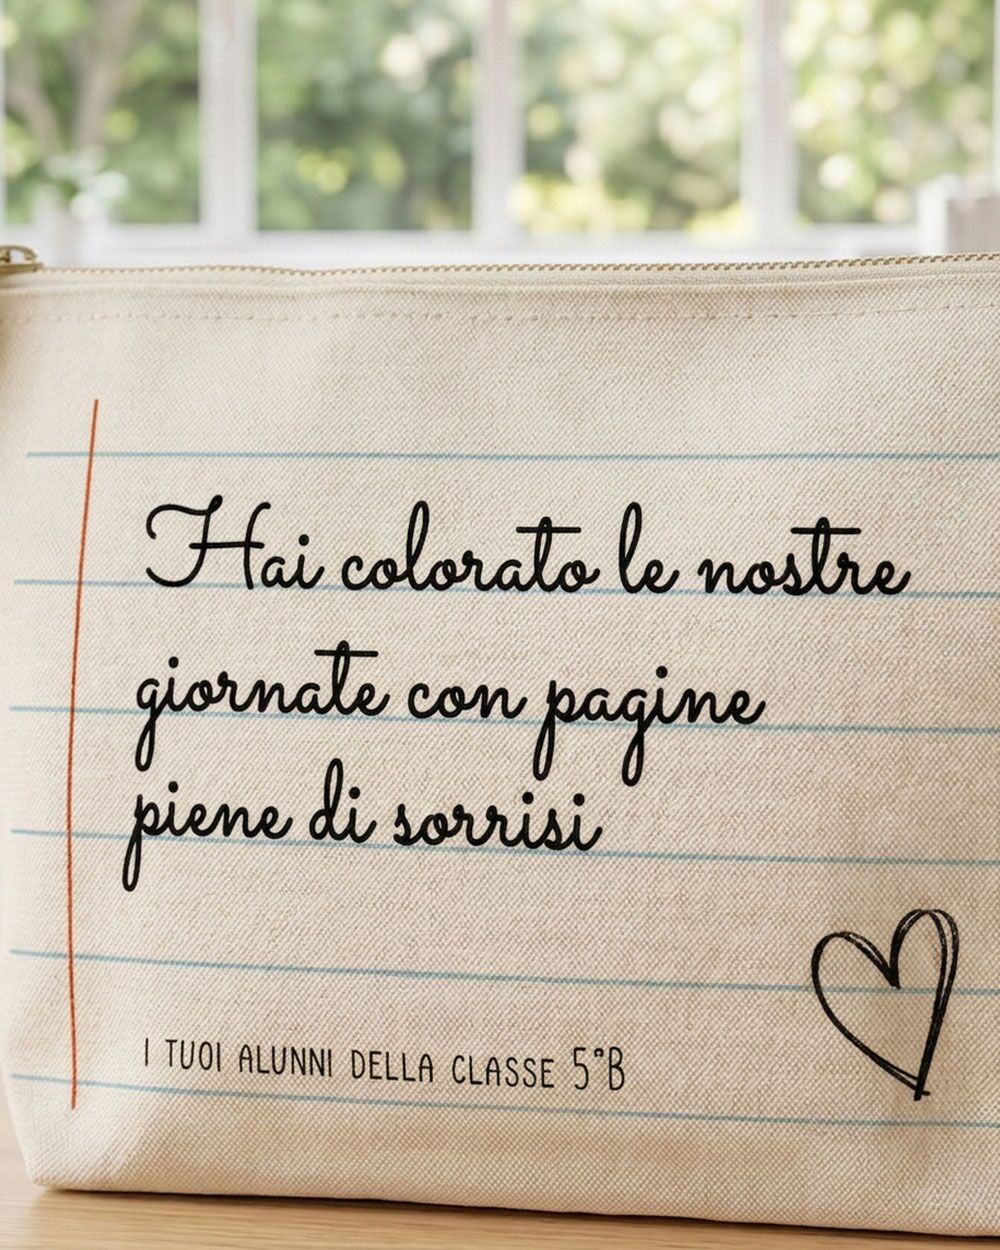 Hai colorato le nostre
giornate con pagine
piene di sorrisi
I TUOI ALUNNI DELLA CLASSE 5°B